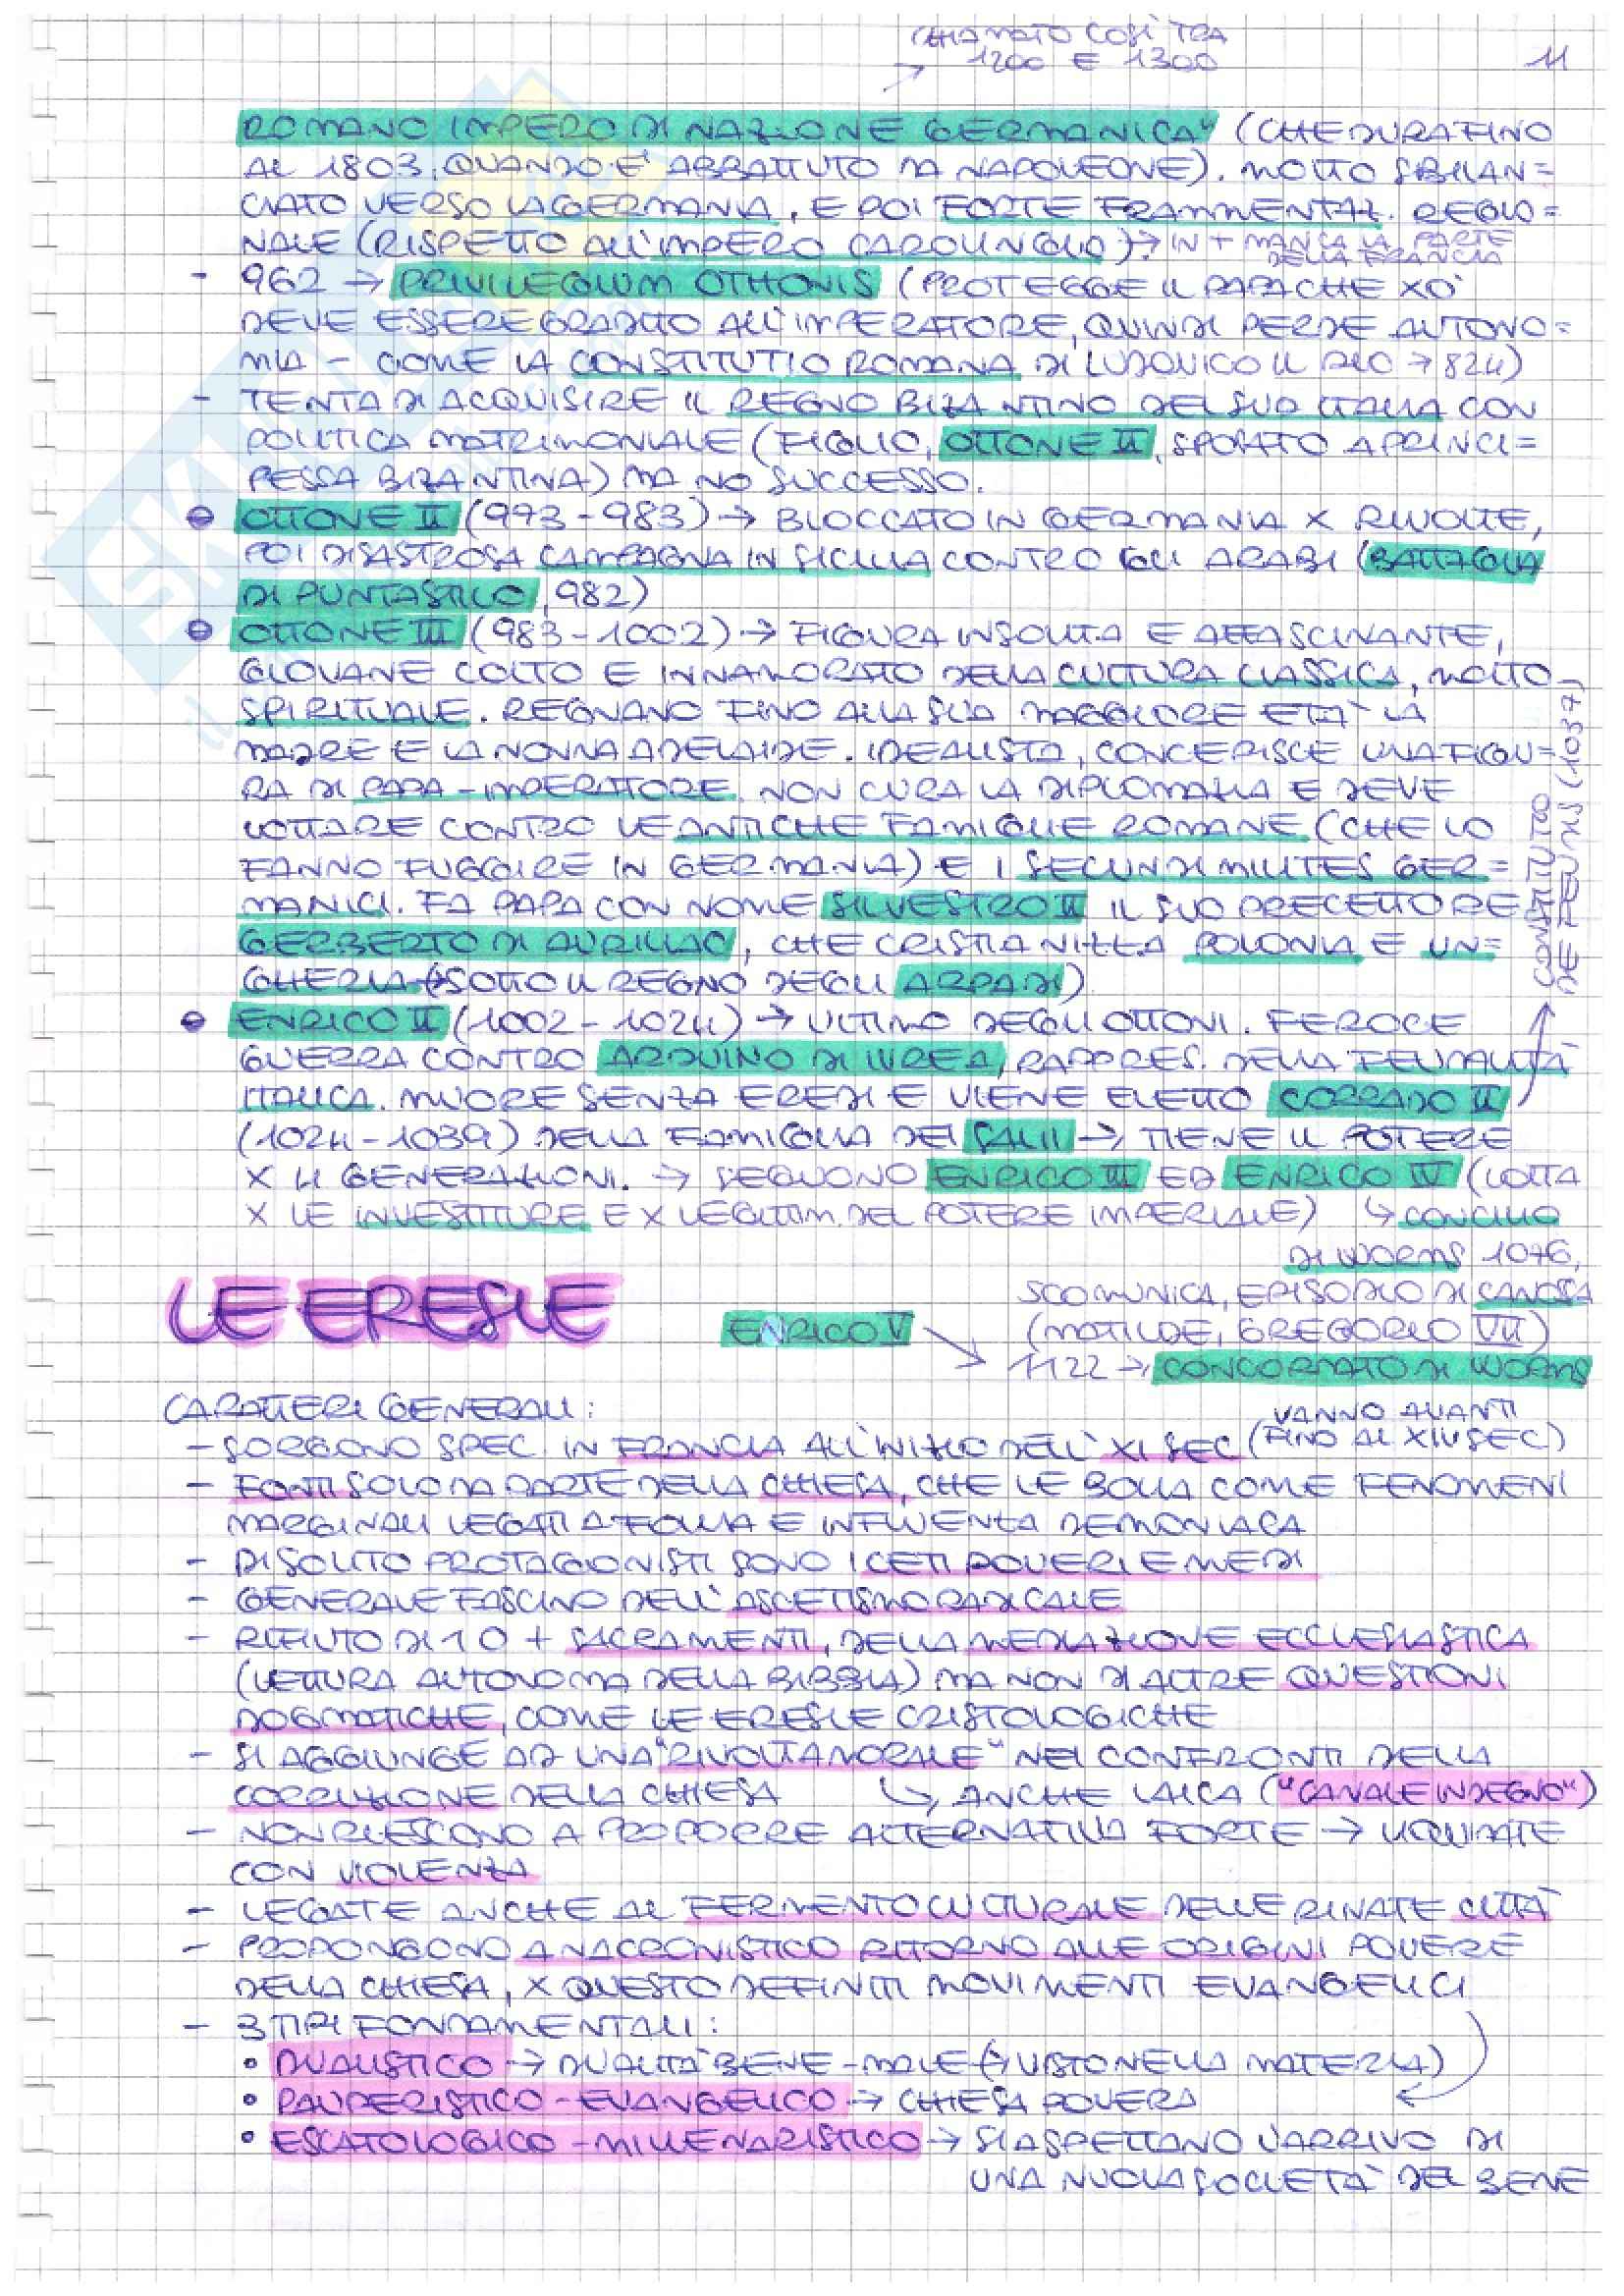 CHIAMATO COSÌ TRA
→ 1200 E 1300
11
ROMANO IMPERO DI NAZIONE GERMANICA" (CHE DURA FINO
AL 1803, QUANDO E' ABBATTUTO DA NAPOLEONE). MOLTO SBILAN=
CIATO VERSO LA GERMANIA, E POI FORTE FRAMMENTAZ. REGIO=
NALE (RISPETTO ALL'IMPERO CAROLINGIO) → IN + MANCA LA PARTE
DELLA FRANCIA
- 962 → PRIVILEGIUM OTHONIS (PROTEGGE IL PAPA CHE XO'
DEVE ESSERE GRADITO ALL'IMPERATORE, QUINDI PERDE AUTONO=
MIA - COME LA CONSTITUTIO ROMANA DI LUDOVICO IL PIO → 824)
- TENTA DI ACQUISIRE IL REGNO BIZANTINO DEL SUD ITALIA CON
POLITICA MATRIMONIALE (FIGLIO, OTTONE II, SPOSATO A PRINCI=
PESSA BIZANTINA) MA NO SUCCESSO.
OTTONE II (973-983) → BLOCCATO IN GERMANIA X RIVOLTE,
POI DISASTROSA CAMPAGNA IN SICILIA CONTRO GLI ARABI (BATTAGLIA
DI PUNTASTILO, 982)
OTTONE III (983-1002) → FIGURA INSOLITA E AFFASCINANTE,
GIOVANE COLTO E INNAMORATO DELLA CULTURA CLASSICA, MOLTO
SPIRITUALE. REGNANO FINO ALLA SUA MAGGIORE ETÀ LA
MADRE E LA NONNA ADELAIDE. IDEALISTA, CONCEPISCE UNA FIGU=
RA DI PAPA-IMPERATORE. NON CURA LA DIPLOMAZIA E DEVE
LOTTARE CONTRO LE ANTICHE FAMIGLIE ROMANE (CHE LO
FANNO FUGGIRE IN GERMANIA) E I SECUNDI MILITES GER=
MANICI. FA PAPA CON NOME SILVESTRO II IL SUO PRECETTORE
GERBERTO DI AURILLAC, CHE CRISTIANIZZA POLONIA E UN=
GHERIA (SOTTO IL REGNO DEGLI ARPADI)
ENRICO II (1002-1024) → ULTIMO DEGLI OTTONI. FEROCE
GUERRA CONTRO ARDUINO DI IVREA, RAPPRES. DELLA FEUDALITÀ
ITALICA. MUORE SENZA EREDI E VIENE ELETTO CORRADO II
(1024-1039) DELLA FAMIGLIA DEI SALII → TIENE IL POTERE
X 4 GENERAZIONI. → SEGUONO ENRICO III ED ENRICO IV (LOTTA
X LE INVESTITURE E X LEGITTIM. DEL POTERE IMPERIALE) ↳ CONCILIO
DI WORMS 1076,
SCOMUNICA, EPISODIO DI CANOSSA
(MATILDE, GREGORIO VII)
CONSTITUTIO
DE FEUDIS (1037)
ENRICO V
1122 → CONCORDATO DI WORMS
LE ERESIE
CARATTERI GENERALI:
VANNO AVANTI
- SORGONO SPEC. IN FRANCIA ALL'INIZIO DELL'XI SEC (FINO AL XIV SEC)
- FONTI SOLO DA PARTE DELLA CHIESA, CHE LE BOLLA COME FENOMENI
MARGINALI LEGATI A FOLLIA E INFLUENZA DEMONIACA
- DI SOLITO PROTAGONISTI SONO I CETI POVERI E MEDI
- GENERALE FASCINO DELL'ASCETISMO RADICALE
- RIFIUTO DI 1 O + SACRAMENTI, DELLA MEDIAZIONE ECCLESIASTICA
(LETTURA AUTONOMA DELLA BIBBIA) MA NON DI ALTRE QUESTIONI
DOGMATICHE, COME LE ERESIE CRISTOLOGICHE
- SI AGGIUNGE AD UNA "RIVOLTA MORALE" NEI CONFRONTI DELLA
CORRUZIONE DELLA CHIESA ↳ ANCHE LAICA ("CANALE INDEGNO")
- NON RIESCONO A PROPORRE ALTERNATIVA FORTE → LIQUIDATE
CON VIOLENZA
- LEGATE ANCHE AL FERMENTO CULTURALE DELLE RINATE CITTÀ
- PROPONGONO ANACRONISTICO RITORNO ALLE ORIGINI POVERE
DELLA CHIESA, X QUESTO DEFINITI MOVIMENTI EVANGELICI
- 3 TIPI FONDAMENTALI:
• DUALISTICO → DUALITÀ BENE-MALE (→ VISTO NELLA MATERIA)
• PAUPERISTICO-EVANGELICO → CHIESA POVERA
• ESCATOLOGICO-MILLENARISTICO → SI ASPETTANO L'ARRIVO DI
UNA NUOVA SOCIETÀ DEL BENE